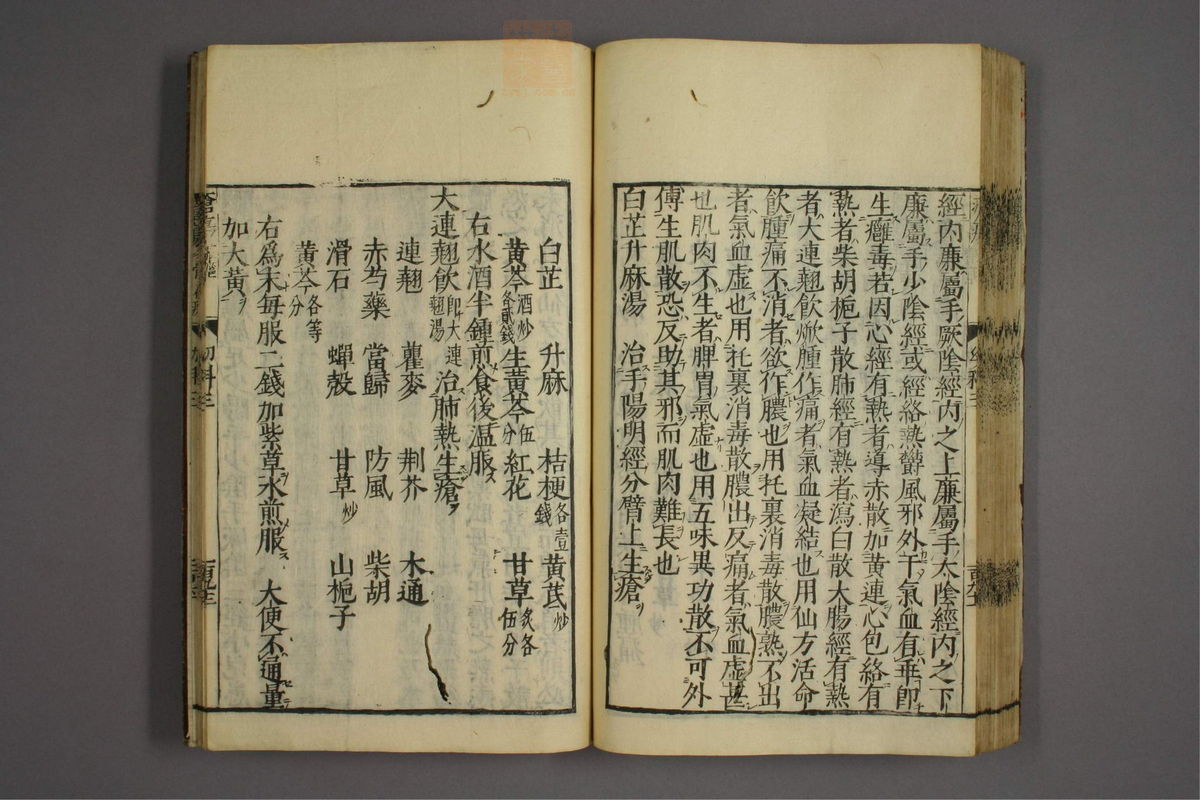 經內廉屬手厥陰經內之上廉屬手太陰經內之下
廉屬手少陰經或經絡熱欝風邪外干氣血有乖即
生癰毒若因心經有熱者導赤散加黃連心包絡有
熱者柴胡梔子散肺經有熱者瀉白散大腸經有熱
者大連翹飲焮腫作痛者氣血凝結也用仙方活命
飲腫痛不消者欲作膿也用托裏消毒散膿熟不出
者氣血虛也用托裏消毒散膿出反痛者氣血虛甚
也肌肉不生者脾胃氣虛也用五味異功散不可外
傅生肌散恐反助其邪而肌肉難長也
白芷升麻湯　治手陽明經分臂上生瘡
白芷　升麻　桔梗各壹錢　黃芪炒
黃芩酒炒各貳錢　生黃芩伍分　紅花　甘草炙各伍分
右水酒半鍾煎食後温服
大連翹飲即大連翹湯　治肺熱生瘡
連翹　瞿麥　荆芥　木通
赤芍藥　當歸　防風　柴胡
滑石　蟬殼　甘草炒　山梔子
黃芩各等分
右爲末每服二錢加紫草水煎服　大便不通量
加大黃
幼科三